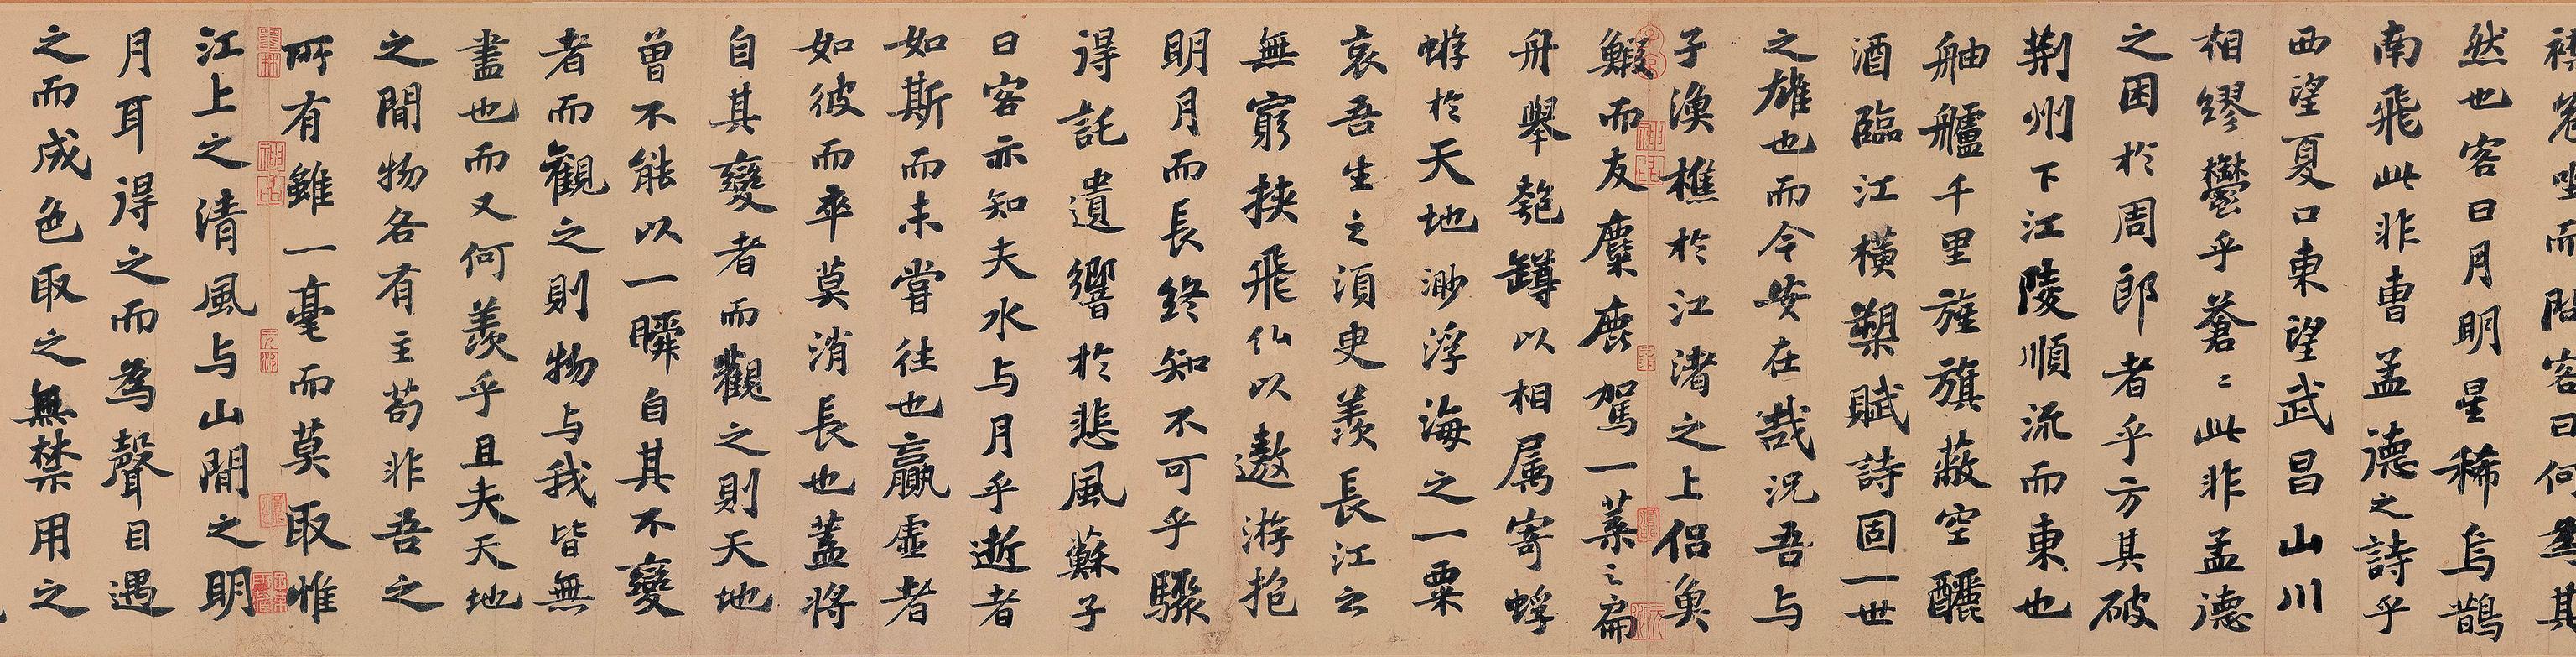 襟危坐而問客曰何為其
然也客曰月明星稀烏鵲
南飛此非曹孟德之詩乎
西望夏口東望武昌山川
相繆鬱乎蒼〻此非孟德
之困於周郎者乎方其破
荊州下江陵順流而東也
舳艫千里旌旗蔽空釃
酒臨江橫槊賦詩固一世
之雄也而今安在哉況吾与
子漁樵於江渚之上侶魚
鰕而友麋鹿駕一葉之扁
舟舉匏罇以相属寄蜉
蝣於天地渺浮海之一粟
哀吾生之須臾羨長江之
無窮挾飛仙以遨游抱
明月而長終知不可乎驟
得託遺響於悲風蘇子
曰客亦知夫水与月乎逝者
如斯而未嘗往也贏虛者
如彼而卒莫消長也蓋將
自其變者而觀之則天地
曾不能以一瞬自其不變
者而觀之則物与我皆無
盡也而又何羨乎且夫天地
之間物各有主苟非吾之
所有雖一毫而莫取惟
江上之清風与山間之明
月耳得之而為聲目遇
之而成色取之無禁用之